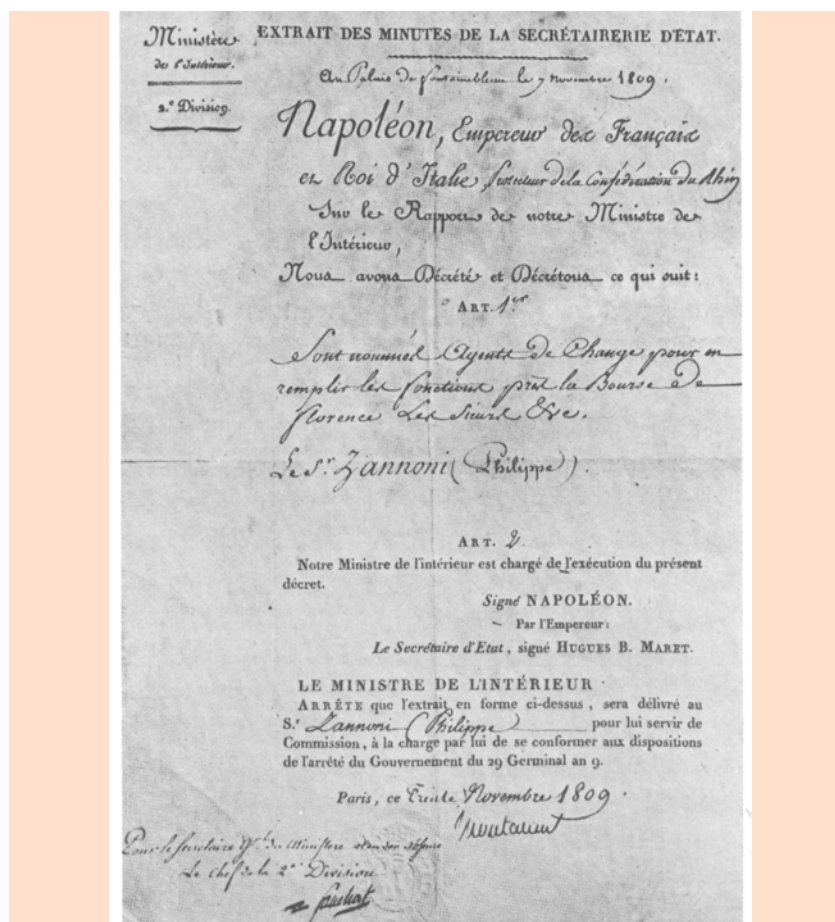 Ministère
de l'Intérieur.
2.e Division.
EXTRAIT DES MINUTES DE LA SECRÉTAIRERIE D'ÉTAT.
Au Palais de fontainebleau le 9 novembre 1809.
Napoléon, Empereur des Français
et Roi d'Italie, Protecteur de la Confédération du Rhin
Sur le Rapport de notre Ministre de
l'Intérieur,
Nous avons Décrété et Décrétons ce qui suit :
ART. 1er
Sont nommés Agents de Change pour en
remplir les fonctions près la Bourse de
florence Les Sieurs &c.
Le Sr. Zannoni (Philippe).
ART. 2.
Notre Ministre de l'intérieur est chargé de l'exécution du présent
décret.
Signé NAPOLÉON.
Par l'Empereur :
Le Secrétaire d'Etat, signé HUGUES B. MARET.
LE MINISTRE DE L'INTÉRIEUR
ARRÊTE que l'extrait en forme ci-dessus, sera délivré au
S.r Zannoni (Philippe) pour lui servir de
Commission, à la charge par lui de se conformer aux dispositions
de l'arrêté du Gouvernement du 29 Germinal an 9.
Paris, ce Trente Novembre 1809.
Pour le Secrétaire Gl. du Ministère
Le chef de la 2e Division